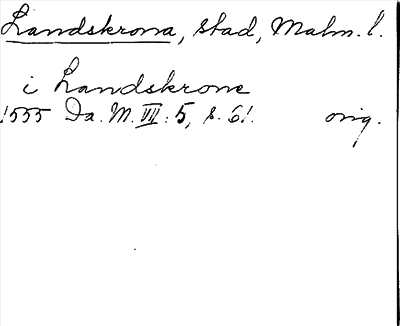 Landskrona, stad, Malm. l.
i Landskrone
1555 Da. M. VII: 5, s. 61. orig.